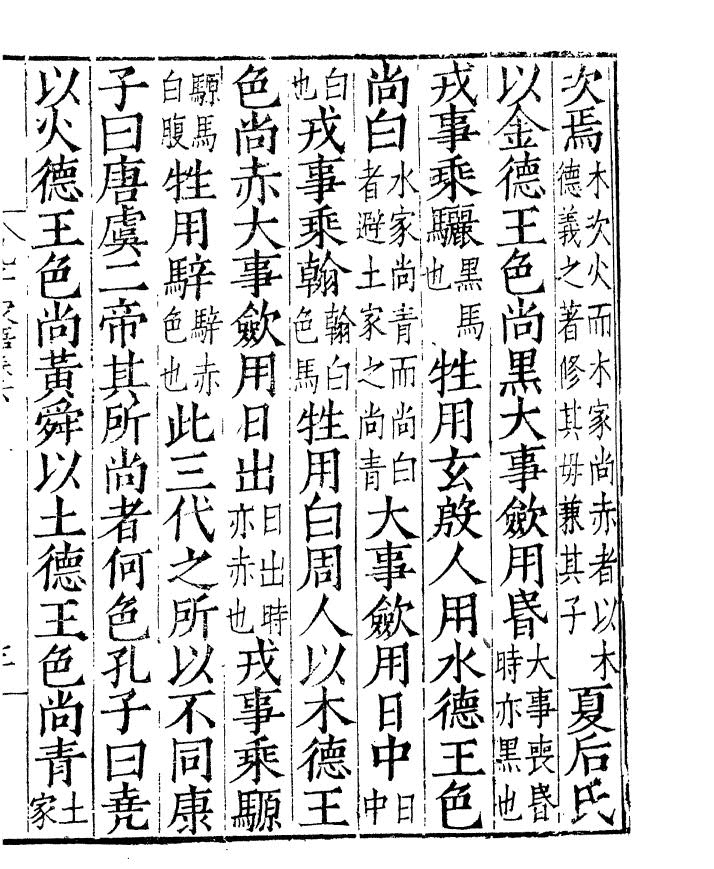 次焉木次火而木家尚赤者以木德義之著修其毋兼其子夏后氏
以金德王色尚黑大事歛用昬大事喪昬時亦黑也
戎事乘驪黑馬也牲用玄殷人用水德王色
尚白水家尚青而尚白者避土家之尚青大事歛用日中日中
白也戎事乘翰翰白色馬牲用白周人以木德王
色尚赤大事歛用日出日出時亦赤也戎事乘騵
騵馬白腹牲用騂騂赤色也此三代之所以不同康
子曰唐虞二帝其所尚者何色孔子曰堯
以火德王色尚黃舜以土德王色尚青土家